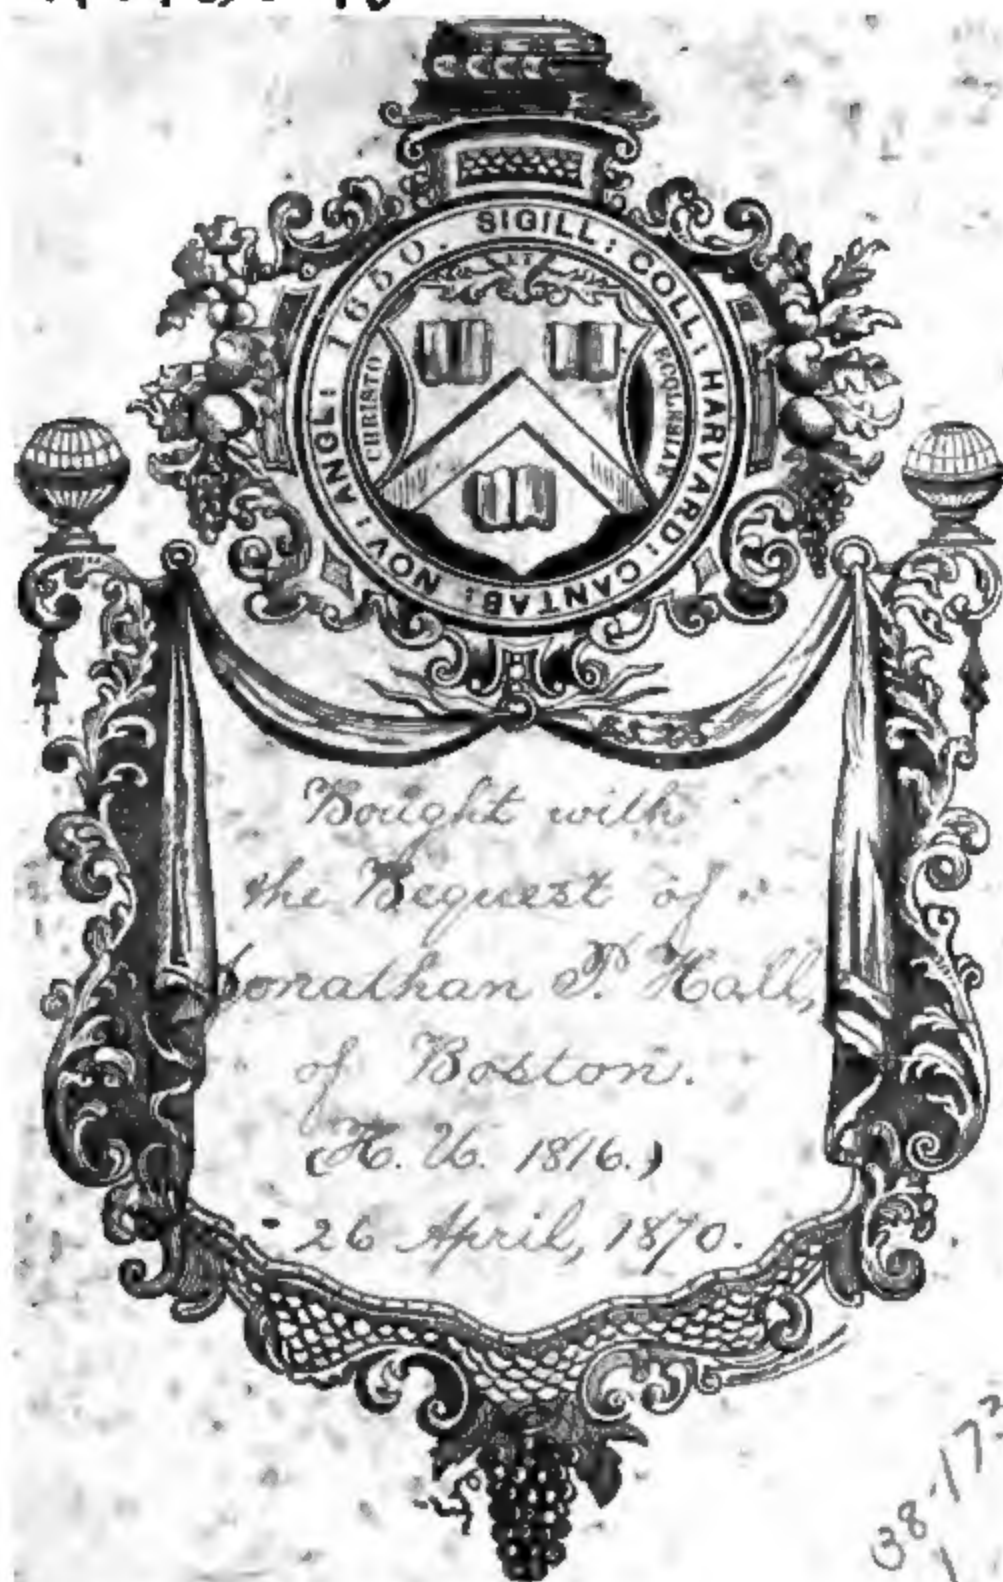 SIGILL: COLL: HARVARD: CANTAB: NOV: ANGL: 1650.
ET
CHRISTO
ECCLESIAE
Bought with
the Bequest of
Jonathan P. Hall,
of Boston.
(H. U. 1816.)
26 April, 1870.